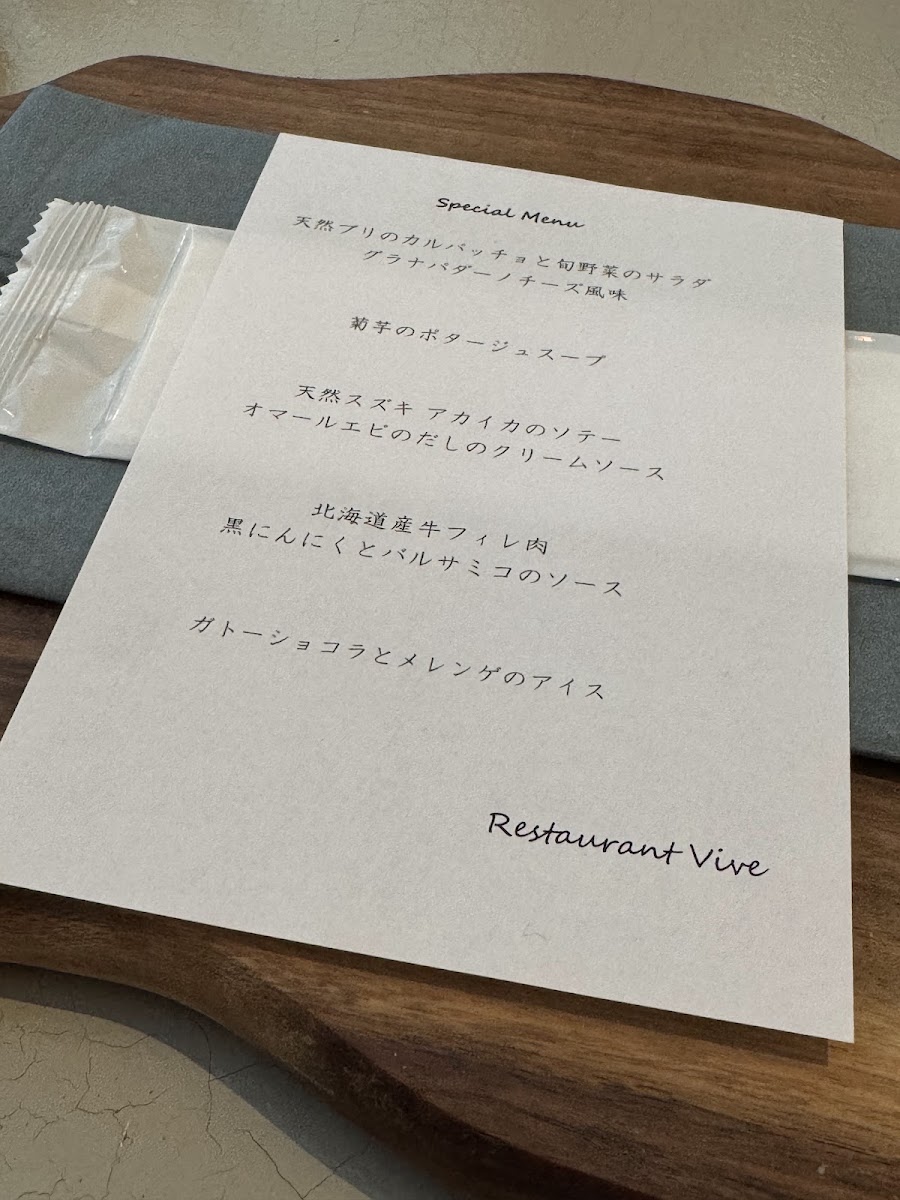 Special Menu
天然ブリのカルパッチョと旬野菜のサラダ
グラナパダーノチーズ風味
菊芋のポタージュスープ
天然スズキ アカイカのソテー
オマールエビのだしのクリームソース
北海道産牛フィレ肉
黒にんにくとバルサミコのソース
ガトーショコラとメレンゲのアイス
Restaurant Vive